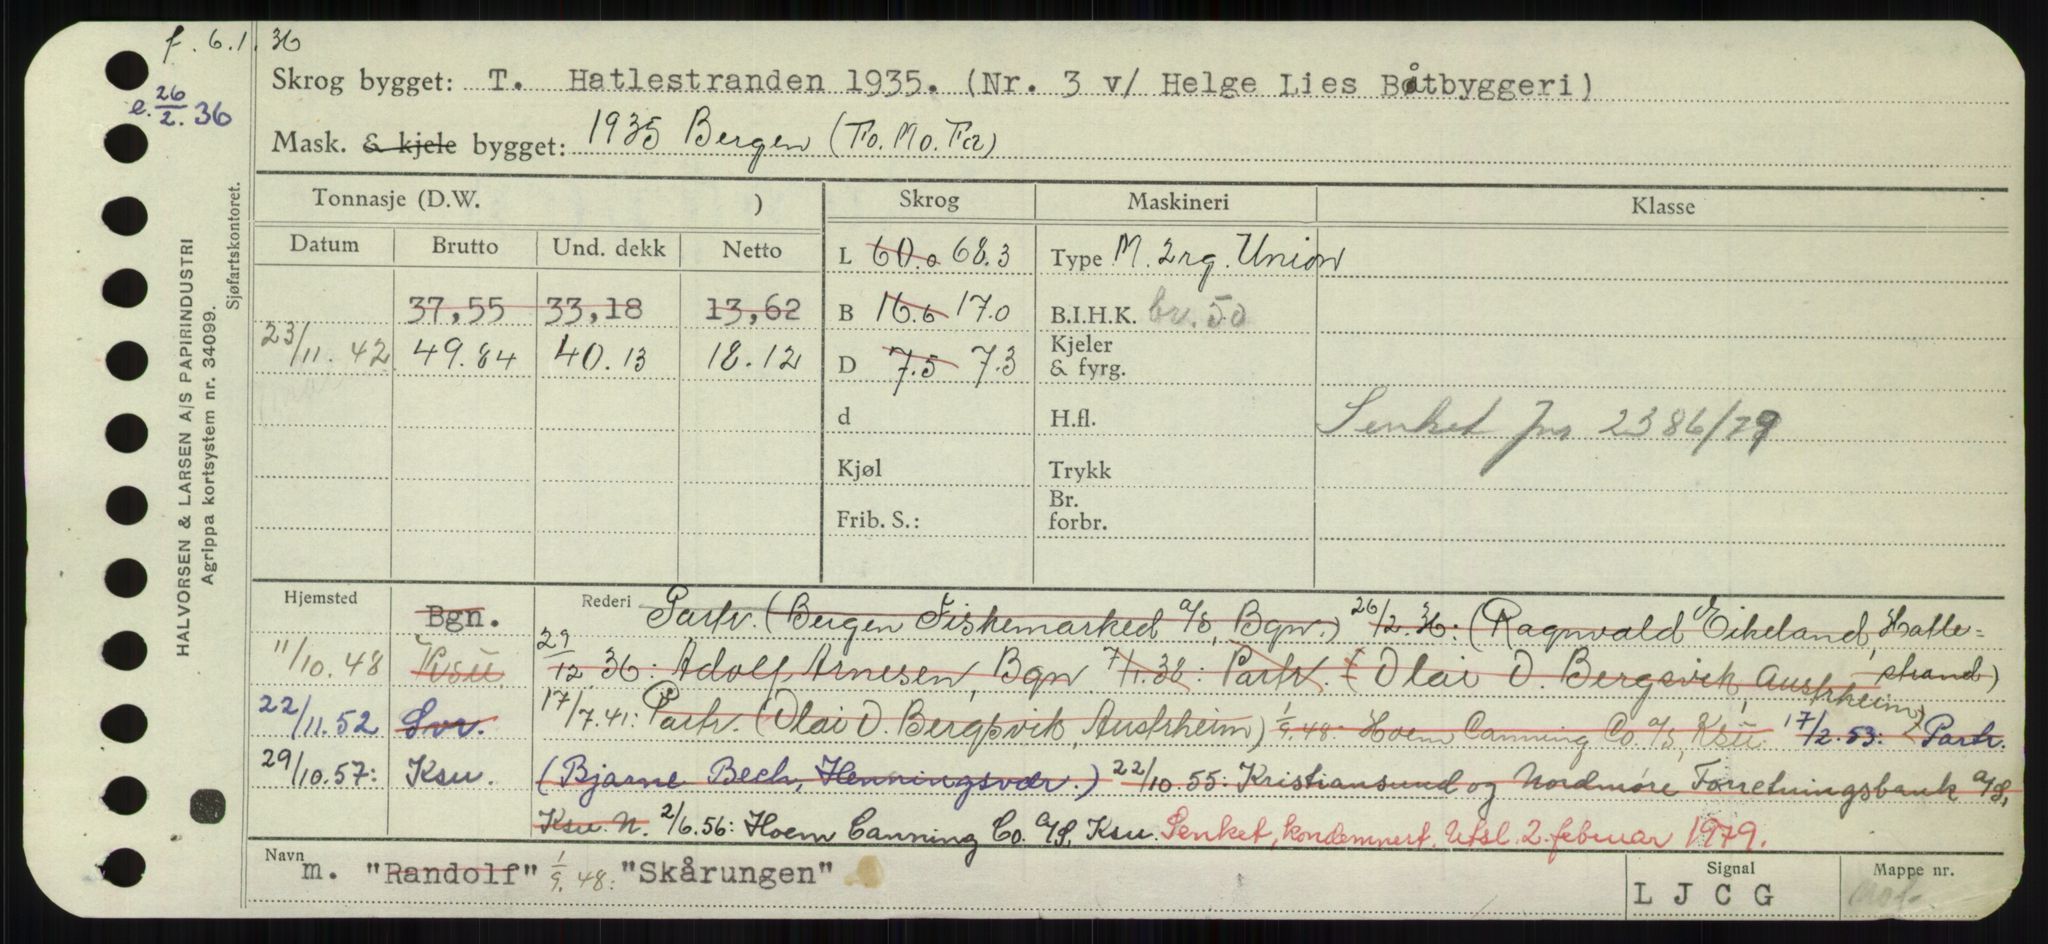 f. 6.1.36
Skrog bygget: T. Hatlestranden 1935. (Nr. 3 v/ Helge Lies Båtbyggeri)
e. 26/2. 36
Mask. & kjele bygget: 1935 Bergen (Fo. Mo. Fa)
HALVORSEN & LARSEN A/S PAPIRINDUSTRI
Agrippa kortsystem nr. 34099.
Sjøfartskontoret.
Tonnasje (D.W. ) Skrog Maskineri Klasse
Datum Brutto Und. dekk Netto L 60.0 68.3 Type M. 2 rg. Union
37,55 33,18 13,62 B 16.6 17.0 B.I.H.K. br. 50
23/11. 42 49.84 40.13 18.12 D 7.5 7.3 Kjeler & fyrg.
d H.fl. Senket Jnr 2386/79
Kjøl Trykk
Frib. S.: Br. forbr.
Hjemsted Bgn. Rederi Partr. (Bergen Fiskemarked A/S, Bgn.) 26/2. 36: (Ragnvald Eikeland, Hatle=
11/10. 48 Ksu. 29/12 36: Adolf Arnesen, Bgn 7/1. 38: Partr. (Olai O. Bergsvik, Austrheim) strand)
22/11. 52 Svr. 17/7. 41: Partr. (Olai O. Bergsvik, Austrheim) 1/9. 48: Hoem Canning Co A/S, Ksu. 17/2. 53: Partr.
29/10. 57: Ksu. (Bjarne Bech, Henningsvær.) 22/10. 55: Kristiansund og Nordmøre Forretningsbank A/S,
Ksu. N. 2/6. 56: Hoem Canning Co. A/S, Ksu. Senket, kondemnert. Utsl. 2. februar 1979.
Navn m. "Randolf" 1/9. 48: "Skårungen" Signal Mappe nr.
L J C G